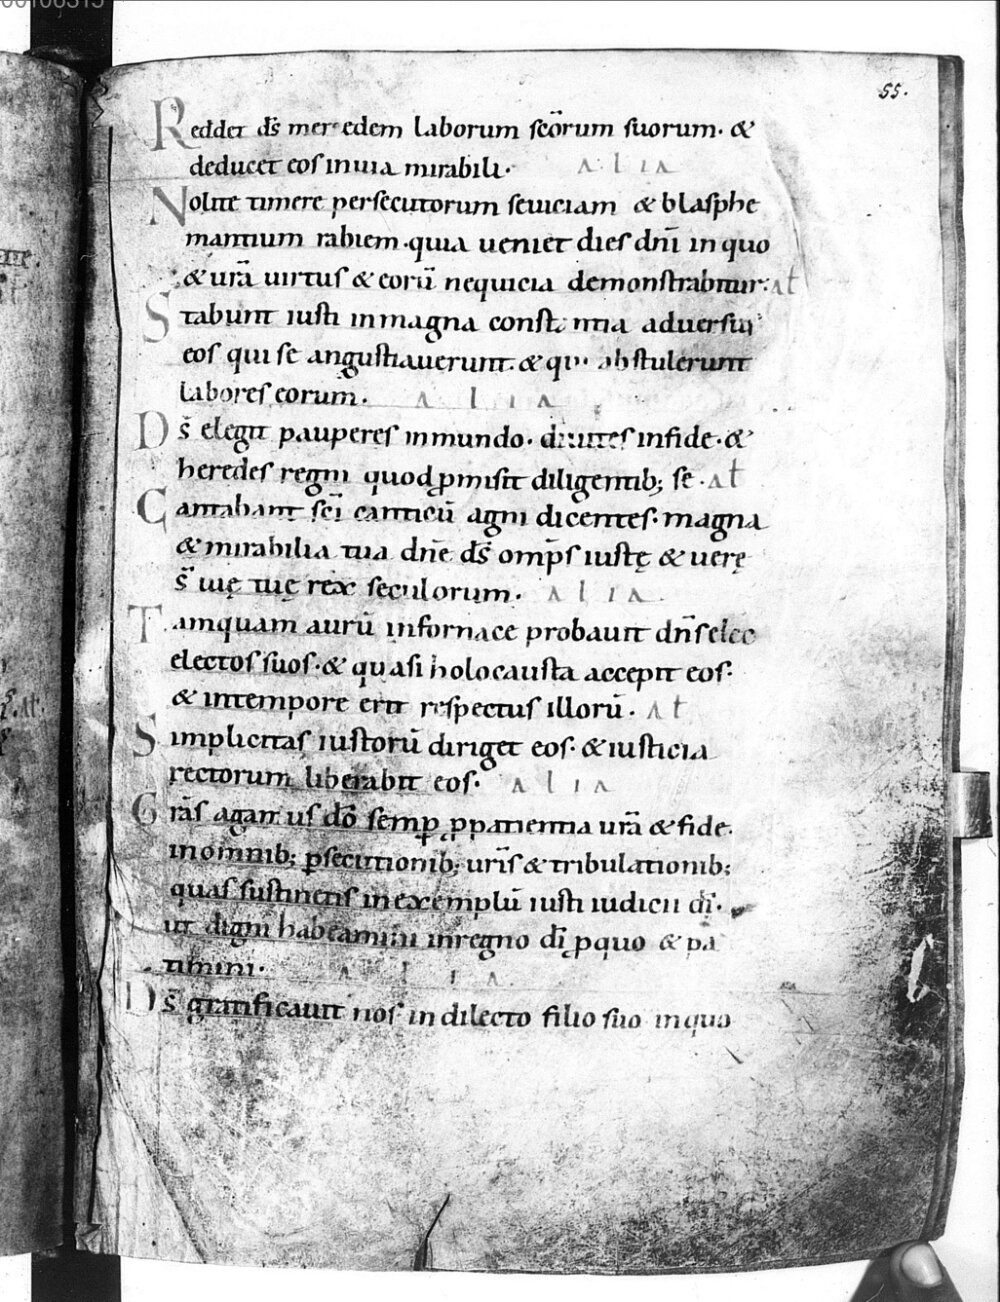 55.
Reddet ds̄ mercedem laborum scōrum suorum. &
deducet eos inuia mirabili. alia
Nolite timere persecutorum seuiciam & blasphe
mantium rabiem. quia ueniet dies dn̄i in quo
& urā uirtus & eorū nequicia demonstrabitur. al̄
Stabunt iusti in magna constantia aduersus
eos qui se angustiauerunt. & qui abstulerunt
labores eorum. alia
Ds̄ elegit pauperes in mundo. diuites in fide. &
heredes regni quod ꝓmisit diligentib; se. al̄
Cantabant sc̄i canticū agni dicentes. magna
& mirabilia tua dn̄e ds̄ omp̄s iustę & uerę
s̄ uię tuę rex seculorum. alia
Tamquam aurū in fornace probauit dn̄s elec
electos suos. & quasi holocausta accepit eos.
& in tempore erit respectus illorū. al̄
Simplicitas iustorū diriget eos. & iusticia
rectorum liberabit eos. alia
Grās agamus dō semꝑ ꝓ patientia urā & fide.
in omnib; ꝑsecutionib; urīs & tribulationib;
quas sustinetis in exemplū iusti iudicii dī.
ut digni habeamini in regno dī ꝓ quo & pa
timini. alia
Ds̄ gratificauit nos in dilecto filio suo in quo